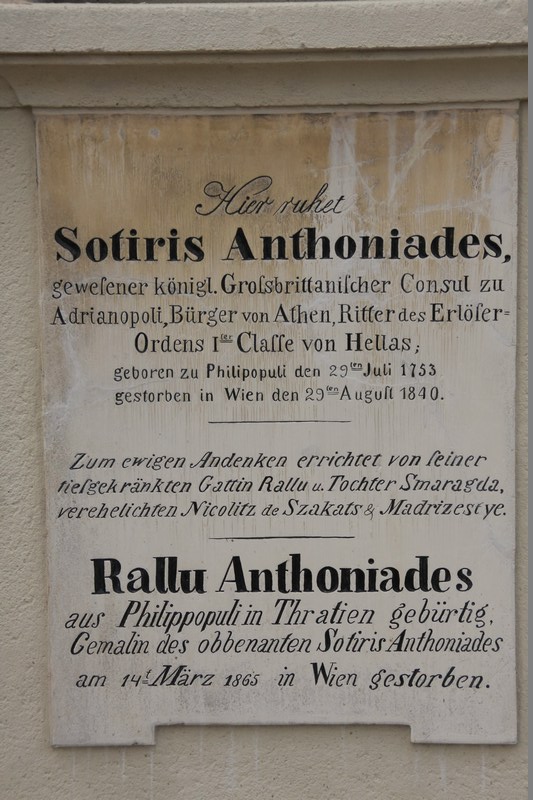 Hier ruhet
Sotiris Anthoniades,
geweſener königl. Groſsbrittaniſcher Consul zu
Adrianopoli, Bürger von Athen, Ritter des Erlöſer=
Ordens Iter Claſſe von Hellas;
geboren zu Philipopuli den 29ten Juli 1753
gestorben in Wien den 29ten Auguſt 1840.
Zum ewigen Andenken errichtet von ſeiner
tiefgekränkten Gattin Rallu u. Tochter Smaragda,
verehelichten Nicolitz de Szakats & Madrizestye.
Rallu Anthoniades
aus Philippopuli in Thratien gebürtig,
Gemalin des obbenanten Sotiris Anthoniades
am 14t März 1865 in Wien gestorben.